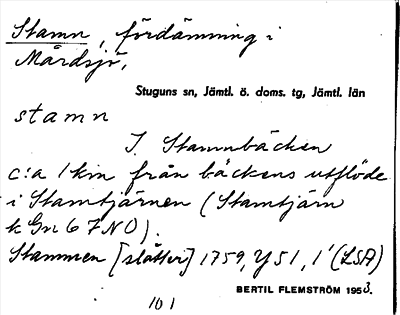 Stamn, fördämning i
Mårdsjö,
Stuguns sn, Jämtl. ö. doms. tg, Jämtl. län
stamn
I. Stamnbäcken
c:a 1 km från bäckens utflöde
i Stamtjärnen (Stamtjärn
k Gn 6 7 NO).
Stammen [slåtter] 1759, Y51, 1' (LSA)
BERTIL FLEMSTRÖM 1953.
101